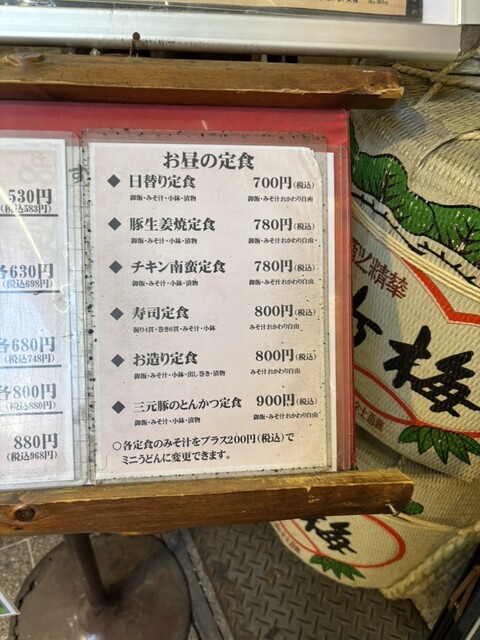 お昼の定食
◆ 日替り定食 700円(税込)
御飯・みそ汁・小鉢・漬物 御飯・みそ汁おかわり自由
◆ 豚生姜焼定食 780円(税込)
御飯・みそ汁・小鉢・漬物 御飯・みそ汁おかわり自由
◆ チキン南蛮定食 780円(税込)
御飯・みそ汁・小鉢・漬物 御飯・みそ汁おかわり自由
◆ 寿司定食 800円(税込)
握り4貫・巻き6貫・みそ汁・小鉢 みそ汁おかわり自由
◆ お造り定食 800円(税込)
御飯・みそ汁・小鉢・出し巻き・漬物 みそ汁おかわり自由
◆ 三元豚のとんかつ定食 900円(税込)
御飯・みそ汁・小鉢・漬物 御飯・みそ汁おかわり自由
○各定食のみそ汁をプラス200円(税込)で
ミニうどんに変更できます。
530円
(税込583円)
各630円
(税込698円)
各680円
(税込748円)
各800円
(税込880円)
880円
(税込968円)
す
精華
梅
梅